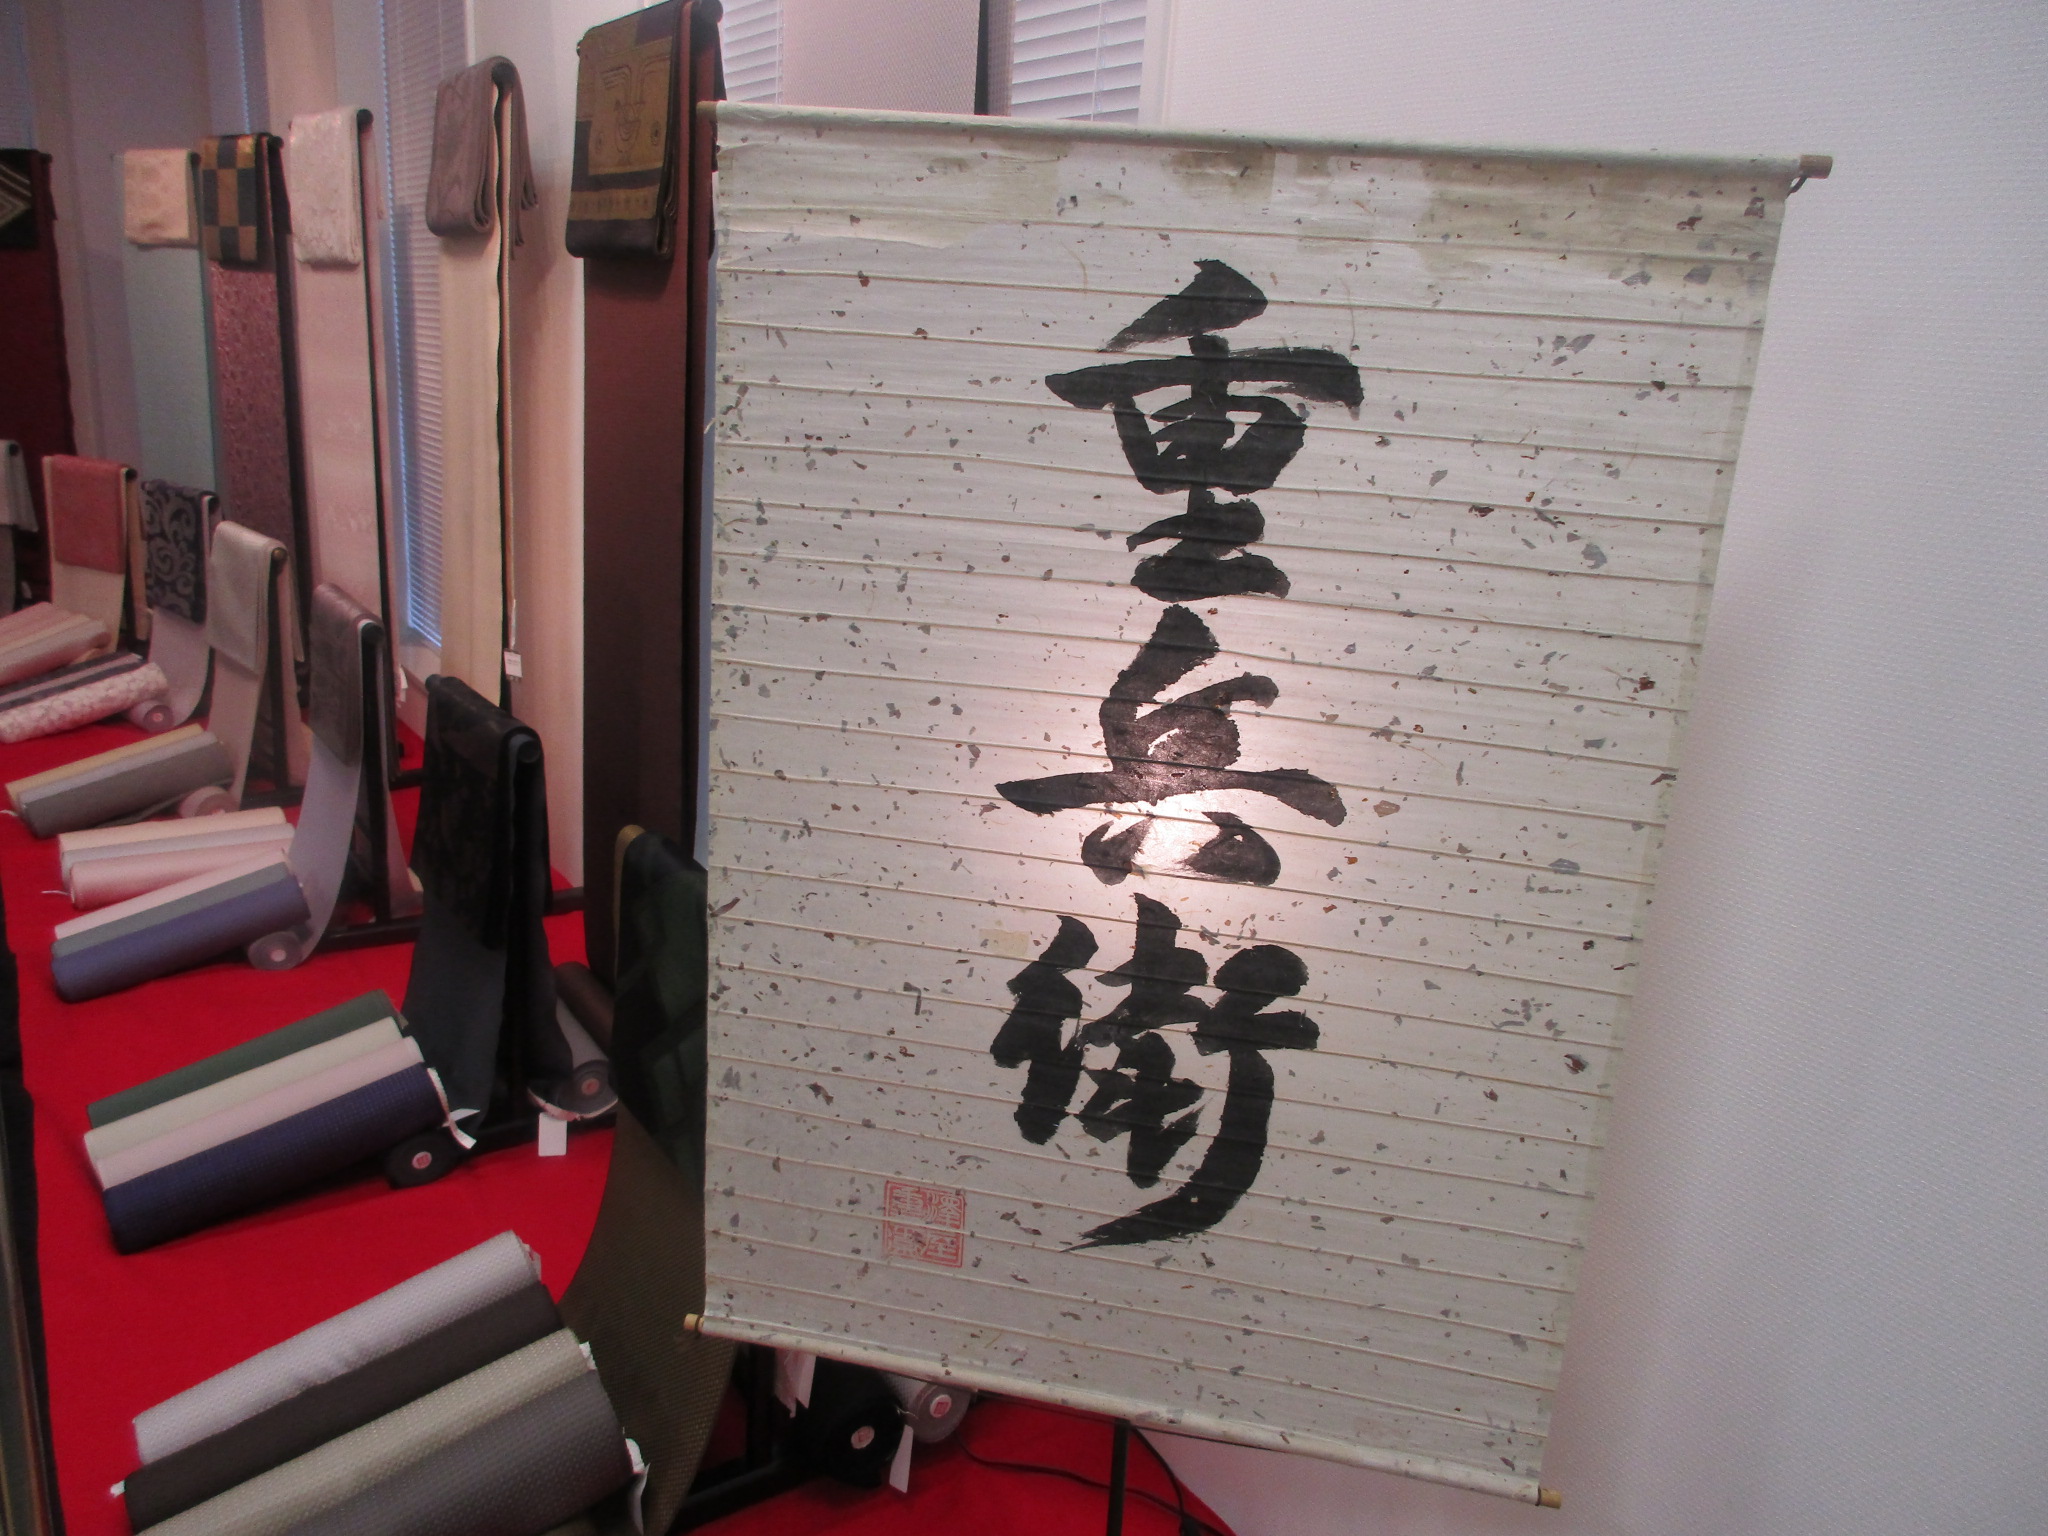 重兵衛